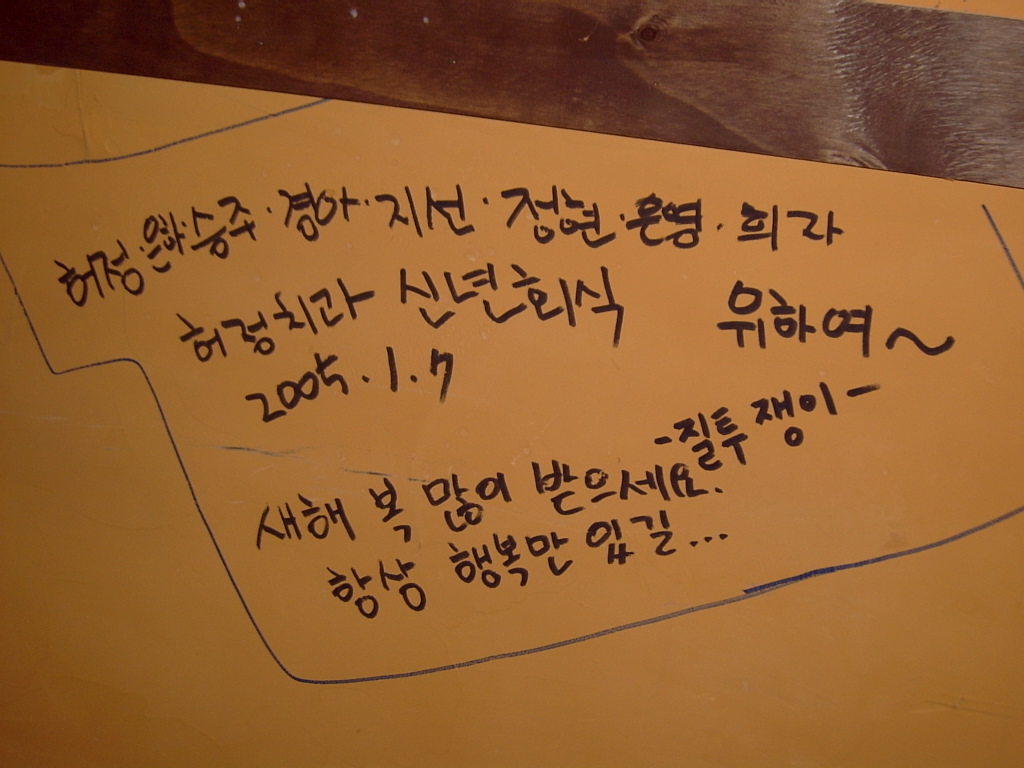 허정·은하·승주·경아·지선·정현·은영·희라
허정치과 신년회식 위하여~
2005.1.7
-질투쟁이-
새해 복 많이 받으세요.
항상 행복만 있길...